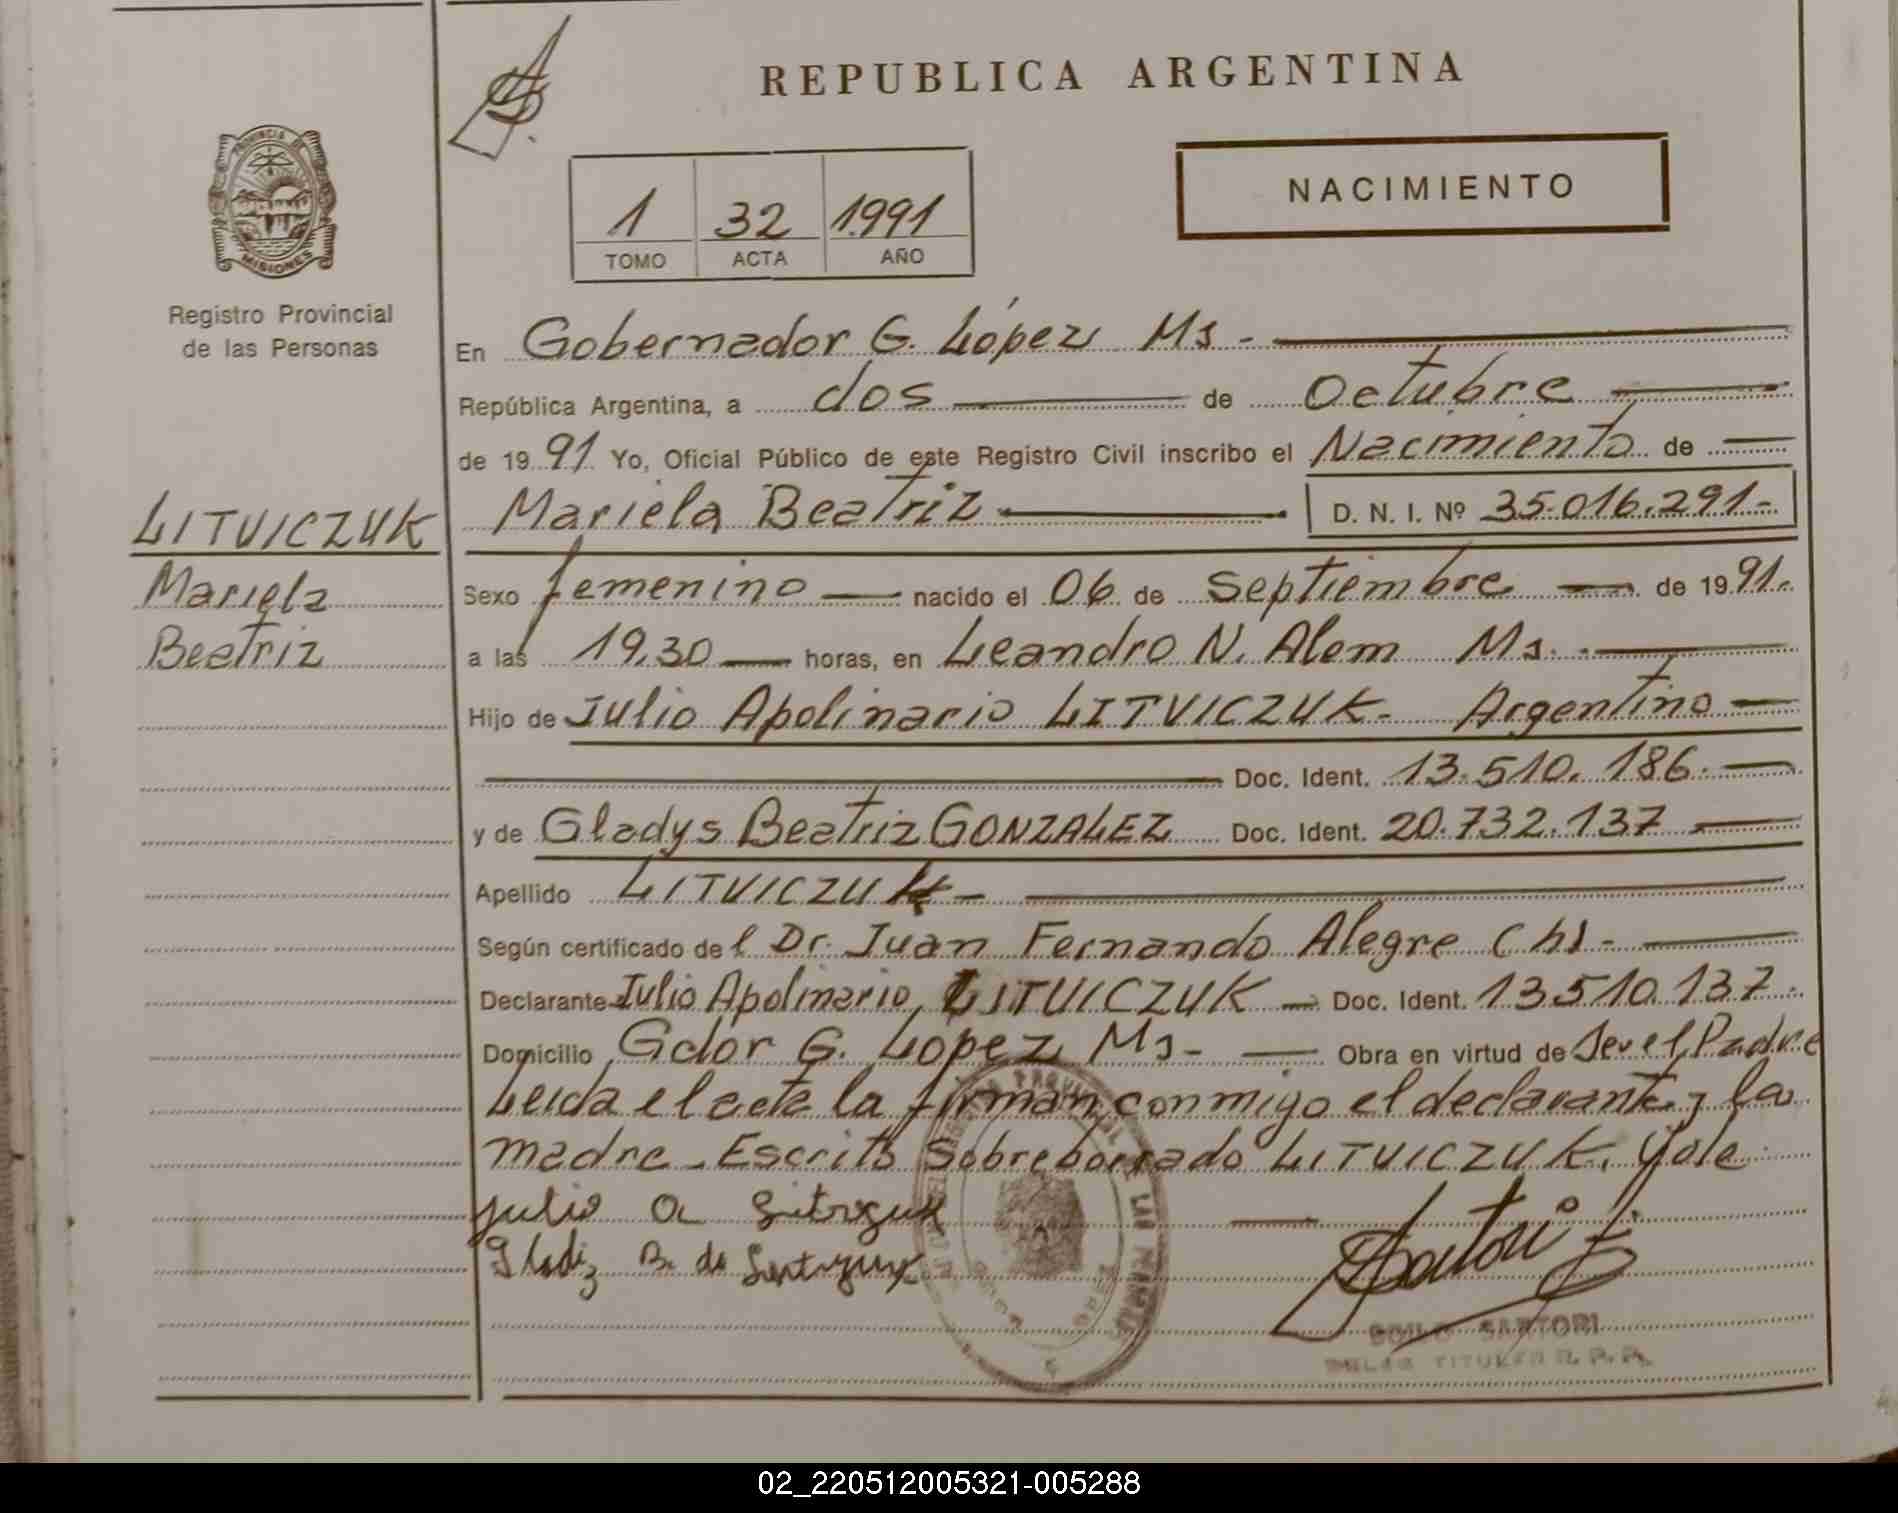 REPUBLICA ARGENTINA
PROVINCIA DE
MISIONES
Registro Provincial
de las Personas
1 32 1991
TOMO ACTA AÑO
NACIMIENTO
En Gobernador G. López Ms -
República Argentina, a dos de Octubre
de 19 91 Yo, Oficial Público de este Registro Civil inscribo el Nacimiento de
LITVICZUK
Mariela Beatriz D. N. I. Nº 35.016.291-
Mariela
Beatriz
Sexo femenino nacido el 06 de Septiembre de 19 91.
a las 19,30 horas, en Leandro N. Alem Ms.
Hijo de Julio Apolinario LITVICZUK- Argentino
Doc. Ident. 13.510.186.
y de Gladys Beatriz GONZALEZ Doc. Ident. 20.732.137
Apellido LITVICZUK -
Según certificado de l Dr. Juan Fernando Alegre Chs -
Declarante Julio Apolinario LITVICZUK Doc. Ident. 13.510.137.
Domicilio Gdor G. Lopez Ms- Obra en virtud de Ser el Padre
Leida el acta la firman conmigo el declarante y la
madre - Escrito Sobreborrado LITVICZUK. Vale
Julio A
B. de
Sartori
SARTORI
TITULAR R.P.P.
02_220512005321-005288